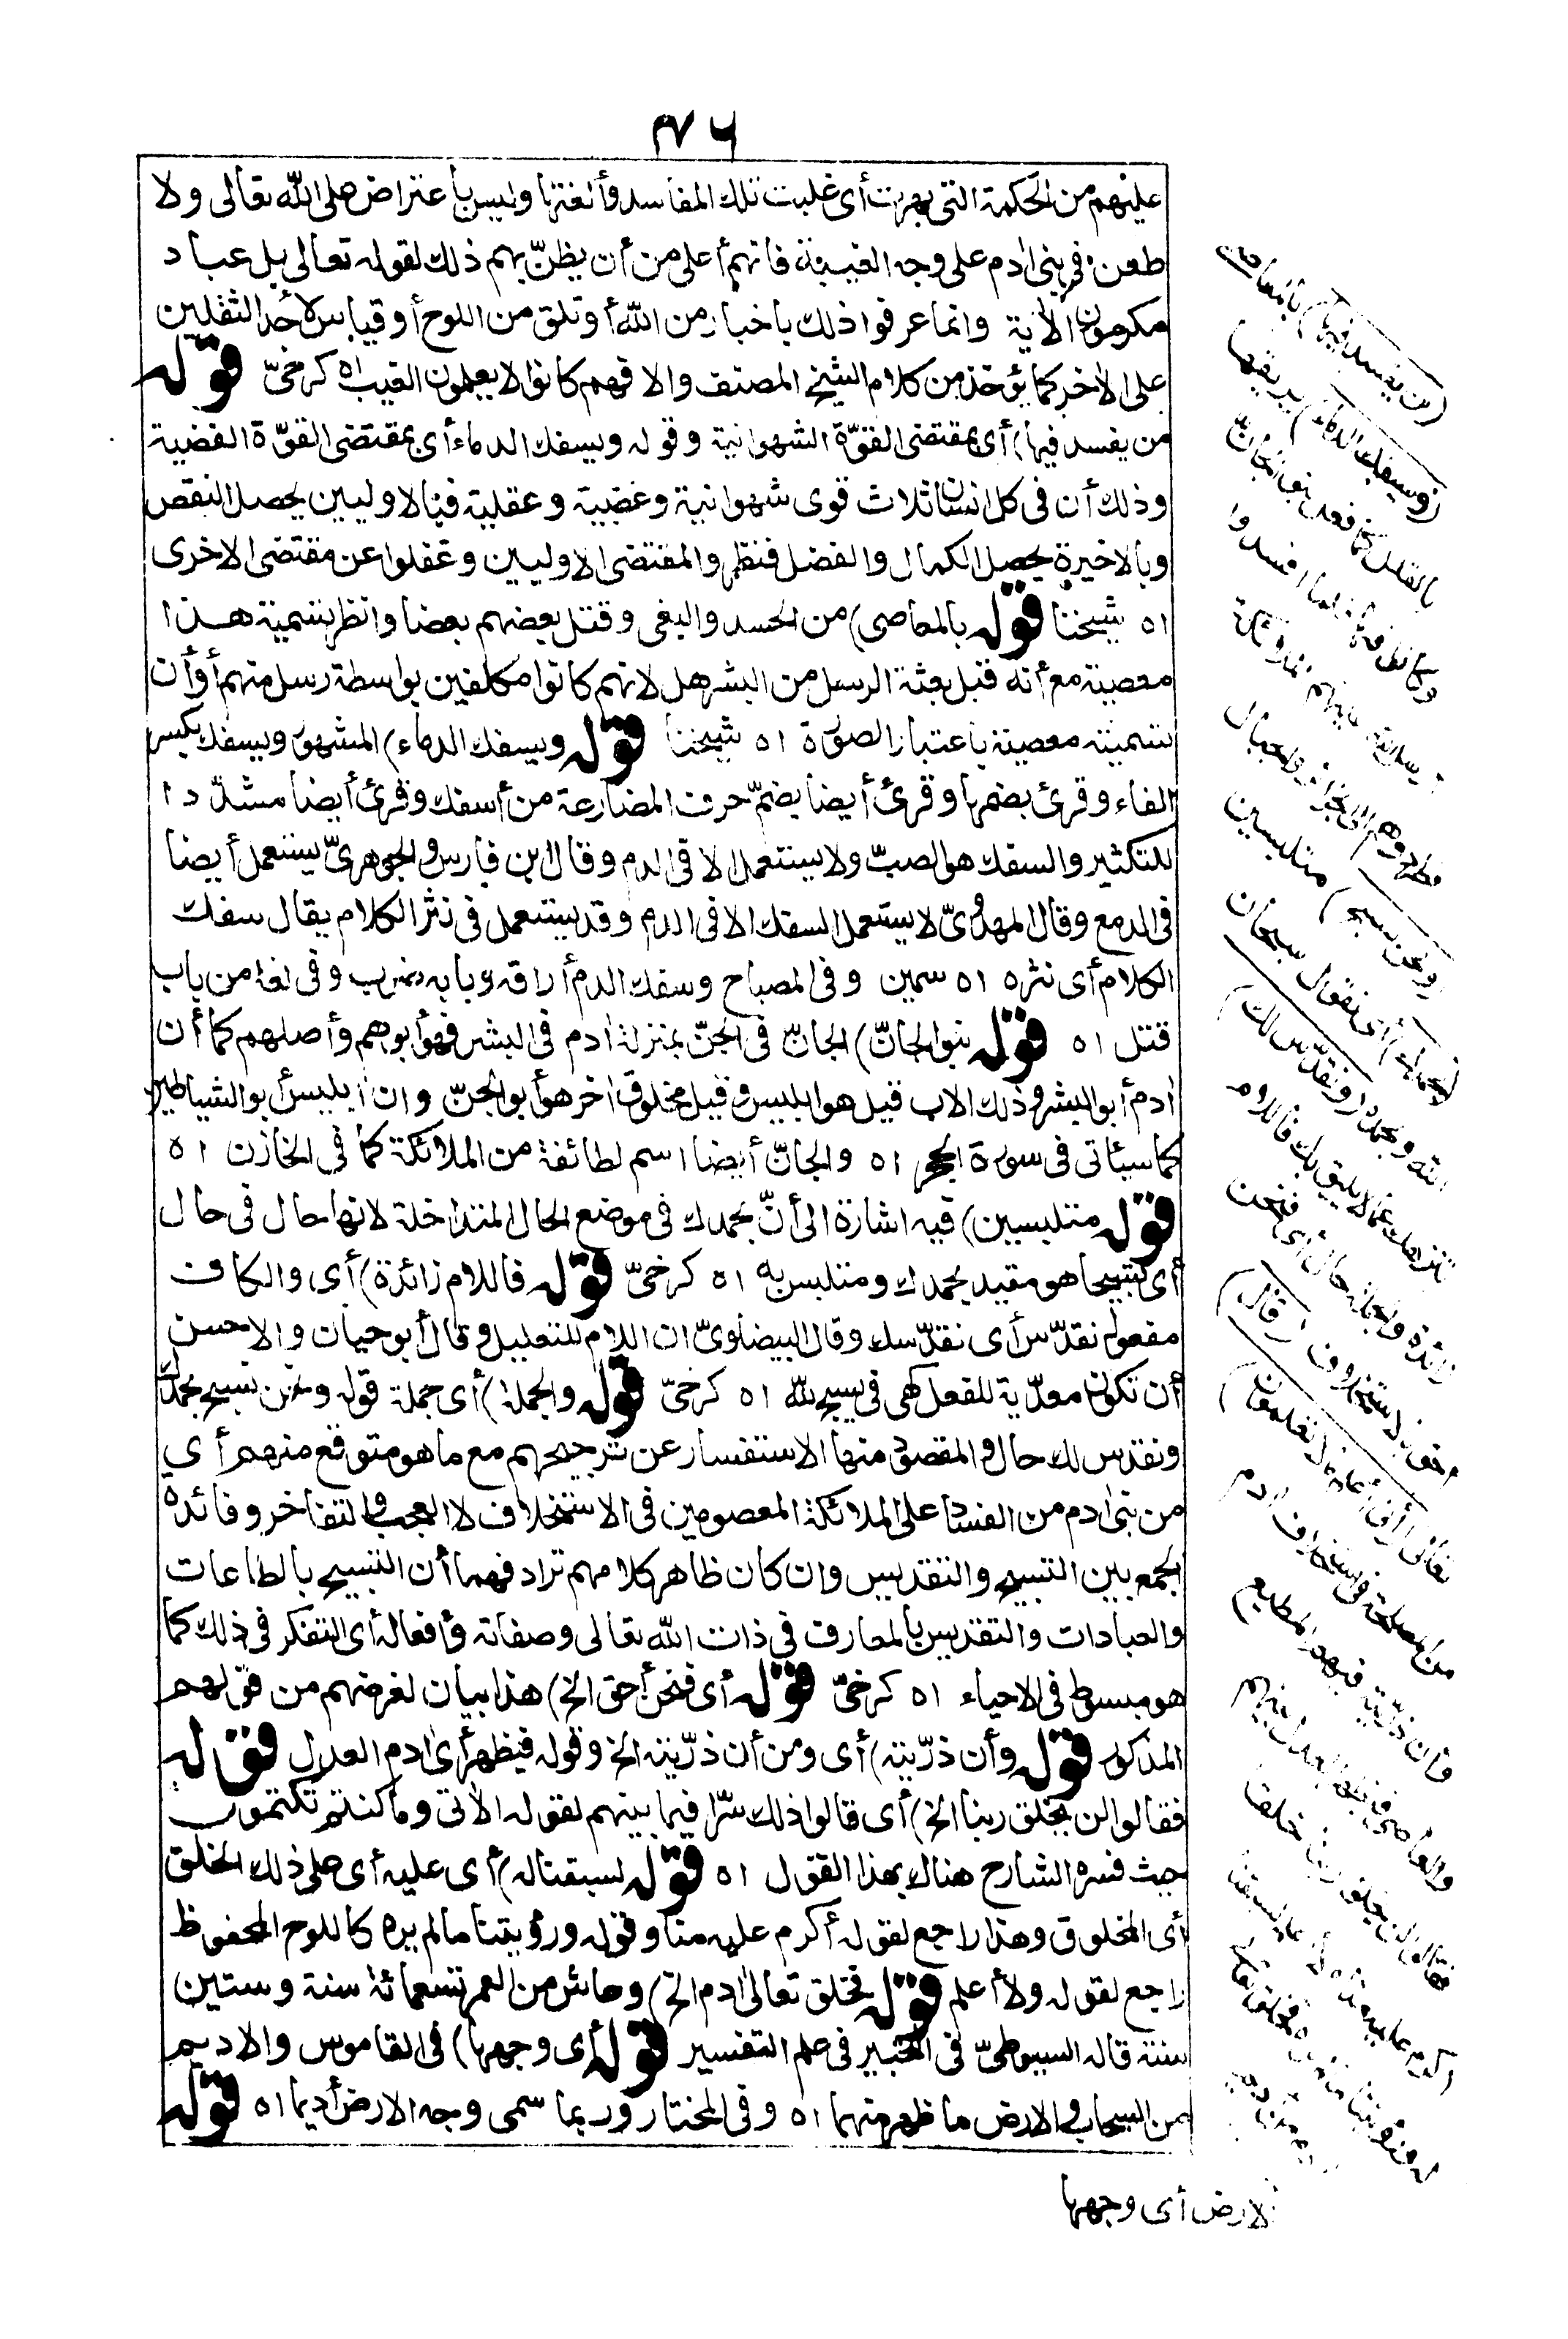 ٣٧٦
عليهم من الحكمة التى بهرت أى غلبت تلك المفاسد وألغتها وليس باعتراض على الله تعالى ولا
طعن فى بنى ادم على وجه الغيبة فانهم أعلى من أن يظنّ بهم ذلك لقوله تعالى بل عباد
مكرمون الأية وانما عرفوا ذلك باخبار من الله أو تلق من اللوح أو قياس لأحد الثقلين
على الأخر كما يؤخذ من كلام الشيخ المصنف والا فهم كانوا لا يعلمون الغيب اه كرخىّ قوله
من يفسد فيها) أى بمقتضى القوّة الشهوانية وقوله ويسفك الدماء أى بمقتضى القوّة الغضبية
وذلك أن فى كل انسان ثلاث قوى شهوانية وغضبية وعقلية فبالاوليين يحصل النقص
وبالاخيرة يحصل الكمال والفضل فنظروا لمقتضى الاوليين وغفلوا عن مقتضى الاخرى
اه شيخنا قوله بالمعاصى) من الحسد والبغى وقتل بعضهم بعضا وانظر تسمية هذا
معصية مع أنه قبل بعثة الرسل من البشر هل لانهم كانوا مكلفين بواسطة رسل منهم أو أن
تسميته معصية باعتبار الصورة اه شيخنا قوله ويسفك الدماء) المشهور ويسفك بكسر
الفاء وقرئ بضمها وقرئ أيضا بضمّ حرف المضارعة من أسفك وقرئ أيضا مشدّدا
للتكثير والسفك هو الصبّ ولا يستعمل الا فى الدم وقال ابن فارس والجوهرىّ يستعمل أيضا
فى الدمع وقال المهدوىّ لا يستعمل السفك الا فى الدم وقد يستعمل فى نثر الكلام يقال سفك
الكلام أى نثره اه سمين وفى المصباح وسفك الدم أراقه وبابه ضرب وفى لغة من باب
قتل اه قوله بنو الجانّ) الجانّ فى الجنّ بمنزلة ادم فى البشر فهو أبوهم وأصلهم كما أن
ادم أبو البشر وذلك الاب قيل هو ابليس وقيل مخلوق اخر هو أبو الجنّ وان ابليس أبو الشياطين
كما سيأتى فى سورة الحجر اه والجانّ أيضا اسم لطائفة من الملائكة كما فى الخازن اه
قوله متلبسين) فيه اشارة الى أنّ بحمدك فى موضع الحال المتداخلة لانها حال فى حال
أى تسبيحا هو مقيد بحمدك ومتلبس به اه كرخىّ قوله فاللام زائدة) أى والكاف
مفعول نقدّس أى نقدّسك وقال البيضاوىّ ان اللام للتعليل وقال أبو حيان والاحسن
أن تكون معدّية للفعل كهى فى يسبح لله اه كرخىّ قوله والجملة) أى جملة قوله ونحن نسبح بحمدك
ونقدس لك حال والمقصود منها الاستفسار عن ترجيحهم مع ما هو متوقع منهم أى
من بنى ادم من الفساد على الملائكة المعصومين فى الاستخلاف لا العجب والتفاخر وفائدة
الجمع بين التسبيح والتقديس وان كان ظاهر كلامهم ترادفهما أن التسبيح بالطاعات
والعبادات والتقديس بالمعارف فى ذات الله تعالى وصفاته وأفعاله أى التفكر فى ذلك كما
هو مبسوط فى الاحياء اه كرخىّ قوله أى فنحن أحق الخ) هذا بيان لغرضهم من قولهم
المذكور قوله وأن ذرّيته) أى ومن أن ذرّيته الخ وقوله فيظهر أى ادم العدل قوله
فقالوا لن يخلق ربنا الخ) أى قالوا ذلك سرّا فيما بينهم لقوله الأتى وما كنتم تكتمون
حيث فسره الشارح هناك بهذا القول اه قوله لسبقنا له) أى عليه أى على ذلك الخلق
أى المخلوق وهذا راجع لقوله أكرم عليه منا وقوله ورؤيتنا ما لم يره كاللوح المحفوظ
راجع لقوله ولا أعلم قوله فخلق تعالى ادم الخ) وعاش من العمر تسعمائة سنة وستين
سنة قاله السيوطىّ فى التحبير فى علم التفسير قوله أى وجهها) فى القاموس والاديم
من السحاب والارض ما ظهر منهما اه وفى المختار وربما سمى وجه الارض أديما اه قوله
(من يفسد فيها) بالمعاصى
(ويسفك الدماء) يريقها
بالقتل كما فعل بنو الجان
وكانوا فيها فلما افسدوا
الى الجزائر والجبال
(ونحن نسبح) متلبسين
(بحمدك) أى نقول سبحان
الله وبحمده (ونقدّس لك)
ننزهك عما لا يليق بك فاللام
زائدة والجملة حال أى فنحن
أحق بالاستخلاف (قال)
تعالى (انى أعلم ما لا تعلمون)
من المصلحة فى استخلاف ادم
وان ذرّيته فيهم المطيع
والعاصى فيظهر العدل بينهم
فقالوا لن يخلق ربنا خلقا
أكرم عليه منا ولا أعلم لسبقنا
له ورؤيتنا ما لم يره فخلق تعالى
الارض أى وجهها